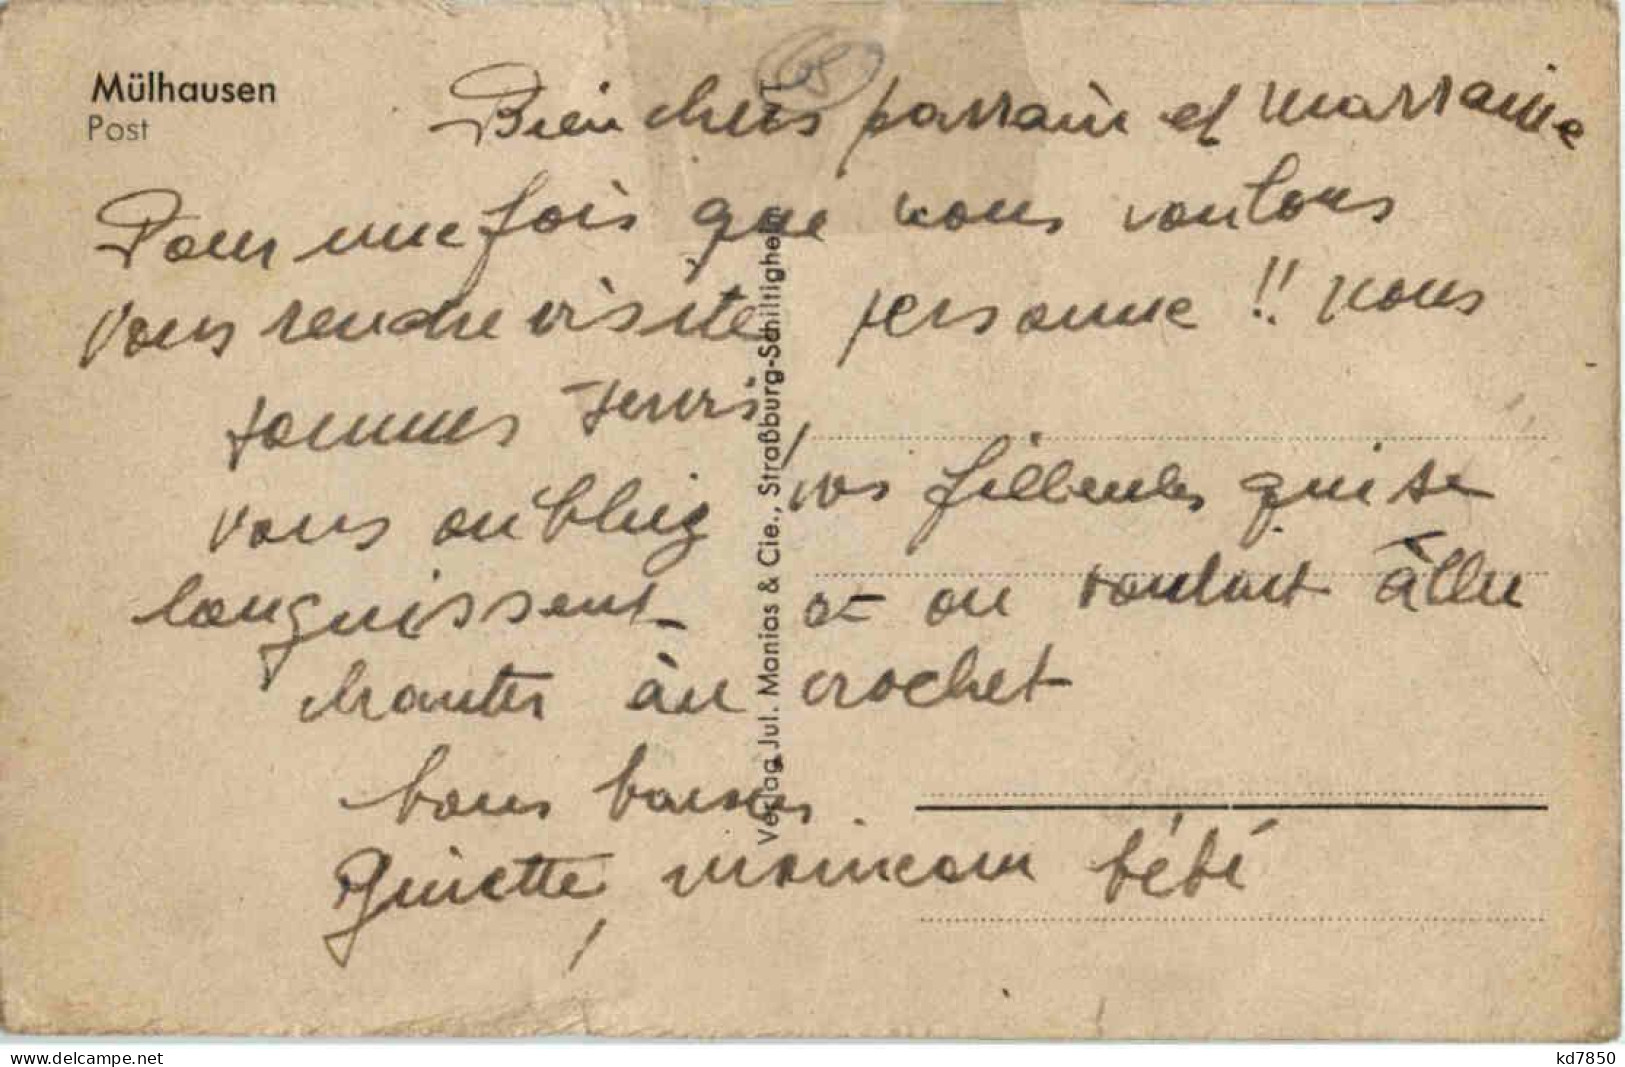 Mülhausen
Post
68
Bien chers parrain et marraine
Pour une fois que nous voulons
vous rendre visite personne !! nous
sommes servis,
vous oubliez vos filleules qui se
languissent et on voulait aller
chanter au crochet
bons baisers.
Ginette, maman bébé
Verlag Jul. Manias & Cie., Straßburg-Schiltigheim
kd7850